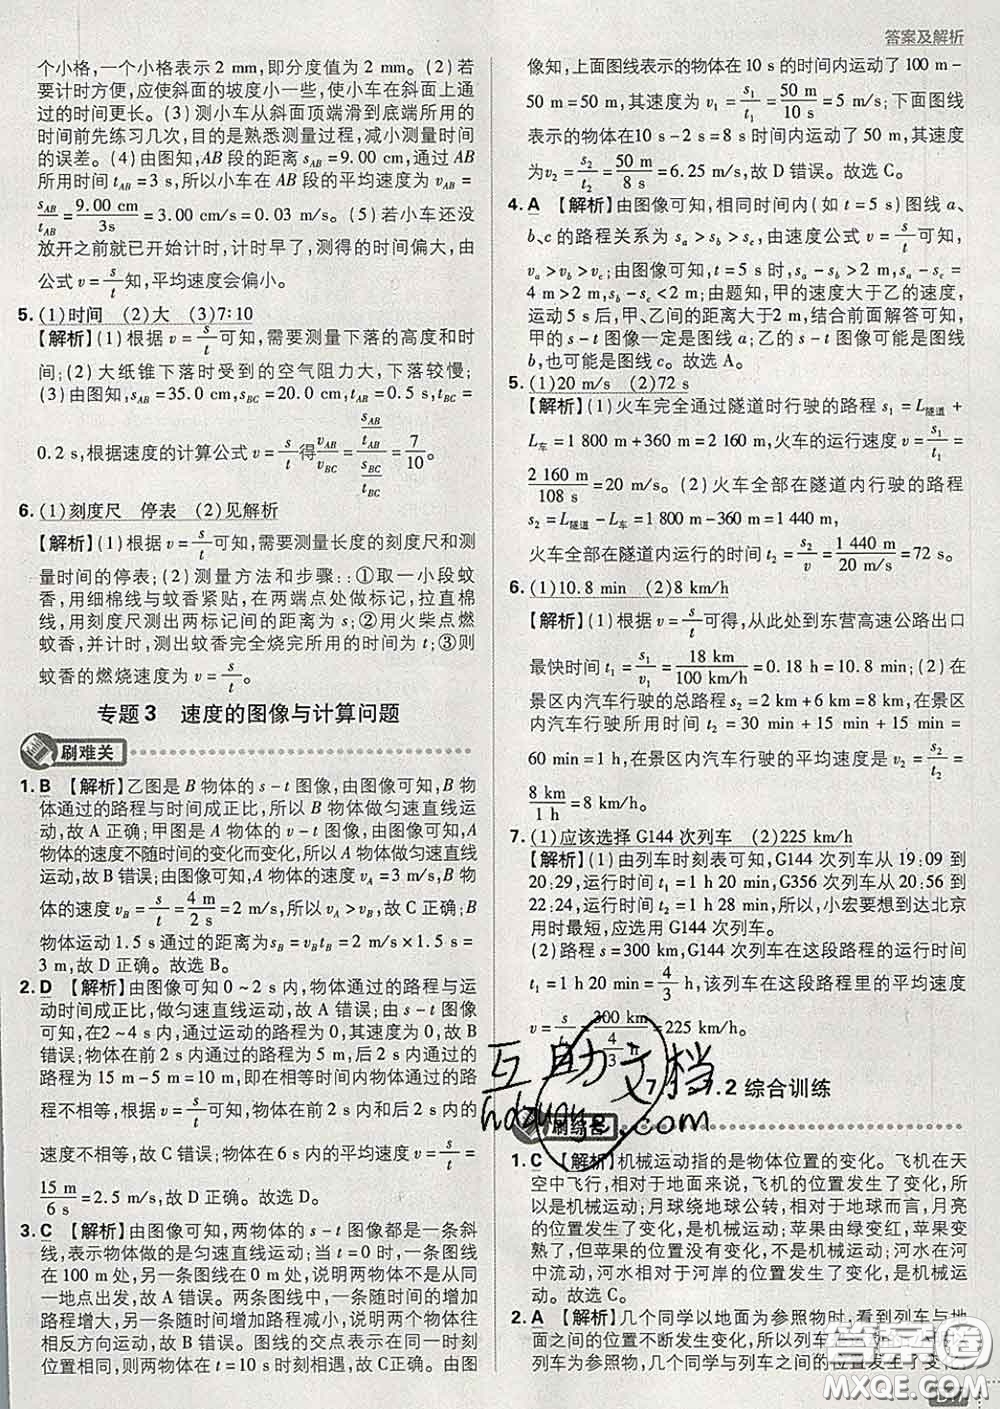 答案及解析
个小格,一个小格表示 2 mm,即分度值为 2 mm。(2)若
要计时方便,应使斜面的坡度小一些,使小车在斜面上通
过的时间更长。(3)测小车从斜面顶端滑到底端所用的
时间前先练习几次,目的是熟悉测量过程,减小测量时间
的误差。(4)由图知,AB 段的距离 s_AB = 9.00 cm,通过 AB
所用时间 t_AB = 3 s,所以小车在 AB 段的平均速度为 v_AB =
s_AB/t_AB = 9.00 cm/3s = 3.00 cm/s = 0.03 m/s。(5)若小车还没
放开之前就已开始计时,计时早了,测得的时间偏大,由
公式 v = s/t 知,平均速度会偏小。
5. (1)时间 (2)大 (3)7:10
【解析】(1)根据 v = s/t 可知,需要测量下落的高度和时
间;(2)大纸锥下落时受到的空气阻力大,下落较慢;
(3)由图知,s_AB = 35.0 cm,s_BC = 20.0 cm,t_AB = 0.5 s,t_BC =
0.2 s,根据速度的计算公式 v = s/t 得 v_AB/v_BC = (s_AB/t_AB)/(s_BC/t_BC) = 7/10。
6. (1)刻度尺 停表 (2)见解析
【解析】(1)根据 v = s/t 可知,需要测量长度的刻度尺和测
量时间的停表;(2)测量方法和步骤::①取一小段蚊
香,用细棉线与蚊香紧贴,在两端点处做标记,拉直棉
线,用刻度尺测出两标记间的距离为 s;②用火柴点燃
蚊香,并计时,测出蚊香完全烧完所用的时间为 t;③则
蚊香的燃烧速度为 v = s/t。
专题 3 速度的图像与计算问题
刷难关
1. B 【解析】乙图是 B 物体的 s-t 图像,由图像可知,B 物
体通过的路程与时间成正比,所以 B 物体做匀速直线运
动,故 A 正确;甲图是 A 物体的 v-t 图像,由图像可知,A
物体的速度不随时间的变化而变化,所以 A 物体做匀速直线
运动,故 B 错误;由图像可知,A 物体的速度 v_A = 3 m/s,B 物
体的速度 v_B = s/t = 4 m/2 s = 2 m/s,所以 v_A > v_B,故 C 正确;B
物体运动 1.5 s 通过的路程为 s_B = v_B t_B = 2 m/s×1.5 s =
3 m,故 D 正确。故选 B。
2. D 【解析】由图像可知 0~2 s 内,物体通过的路程与运
动时间成正比,做匀速直线运动,故 A 错误;由 s-t 图像
可知,在 2~4 s 内,通过运动的路程为 0,其速度为 0,故 B
错误;物体在前 2 s 内通过的路程为 5 m,后 2 s 内通过的
路程为 15 m-5 m = 10 m,即在相等时间内物体通过的路
程不相等,根据 v = s/t 可知,物体在前 2 s 内和后 2 s 内的
速度不相等,故 C 错误;物体在 6 s 内的平均速度 v = s/t =
15 m/6 s = 2.5 m/s,故 D 正确。故选 D。
3. C 【解析】由图像可知,两物体的 s-t 图像都是一条斜
线,表示物体做的是匀速直线运动;当 t = 0 时,一条图线
在 100 m 处,另一条图线在 0 m 处,说明两物体不是从同
一地点出发,故 A 错误。两条图线中,一条随时间的增加
路程增大,另一条随时间的增加路程减小,说明两物体在
相反方向运动,故 B 错误。图线的交点表示在同一时刻
位置相同,则两物体在 t = 10 s 时刻相遇,故 C 正确。由图
像知,上面图线表示的物体在 10 s 的时间内运动了 100 m-
50 m = 50 m,其速度为 v₁ = s₁/t₁ = 50 m/10 s = 5 m/s;下面图线
表示的物体在10 s-2 s = 8 s 时间内运动了 50 m,其速度
为v₂ = s₂/t₂ = 50 m/8 s = 6.25 m/s,故 D 错误。故选 C。
4. A 【解析】由图像可知,相同时间内(如 t = 5 s)图线 a、
b、c的路程关系为 s_a > s_b > s_c,由速度公式 v = s/t 可知,
v_a > v_b > v_c;由图像可知,t = 5 s时,s_a-s_b = 2 m,s_a-s_c =
4 m > 2 m,s_b-s_c = 2 m;由题知,甲的速度大于乙的速度,
运动 5 s后,甲、乙间的距离大于2 m,结合前面解答可知,
甲的 s-t 图像一定是图线 a;乙的 s-t 图像可能是图线
b,也可能是图线 c。故选 A。
5. (1)20 m/s (2)72 s
【解析】(1)火车完全通过隧道时行驶的路程 s₁ = L隧道 +
L车 = 1 800 m+360 m = 2 160 m,火车的运行速度 v = s₁/t₁ =
2 160 m/108 s = 20 m/s。(2)火车全部在隧道内行驶的路程
s₂ = L隧道-L车 = 1 800 m-360 m = 1 440 m,
火车全部在隧道内运行的时间 t₂ = s₂/v = 1 440 m/20 m/s = 72 s。
6. (1)10.8 min (2)8 km/h
【解析】(1)根据 v = s/t 可得,从此处到东营高速公路出口
最快时间 t₁ = s₁/v₁ = 18 km/100 km/h = 0.18 h = 10.8 min;(2)在
景区内汽车行驶的总路程 s₂ = 2 km+6 km = 8 km,在景区
内汽车行驶所用时间 t₂ = 30 min+15 min+15 min =
60 min = 1 h,在景区内汽车行驶的平均速度 v₂ = s₂/t₂ =
8 km/1 h = 8 km/h。
7. (1)应该选择 G144 次列车 (2)225 km/h
【解析】(1)由列车时刻表可知,G144 次列车从 19:09 到
20:29,运行时间 t₁ = 1 h 20 min,G356 次列车从 20:56 到
22:24,运行时间 t₂ = 1 h 28 min,所以,小宏要想到达北京
用时最短,应选用 G144 次列车。
(2)路程 s = 300 km,G144 次列车在这段路程的运行时间
t₁ = 1 h 20 min = 4/3 h,该列车在这段路程里的平均速度
v = s/t = 300 km/(4/3 h) = 225 km/h。
7 .2 综合训练
刷综合
1. C 【解析】机械运动指的是物体位置的变化。飞机在天
空中飞行,相对于地面来说,飞机的位置发生了变化,所
以是机械运动;月球绕地球公转,相对于地球而言,月亮
的位置发生了变化,是机械运动;苹果由绿变红,苹果变
熟了,但苹果的位置没有变化,不是机械运动;河水在河
中流动,河水相对于河岸的位置发生了变化,是机械运
动。故选 C。
2. A 【解析】几个同学以地面为参照物时,看到列车与地
面之间的位置不断发生变化,所以列车
列车为参照物,几个同学与列车之间的位置发生了变化
互助文档
hdzuoy
答案圈
MXQE.COM